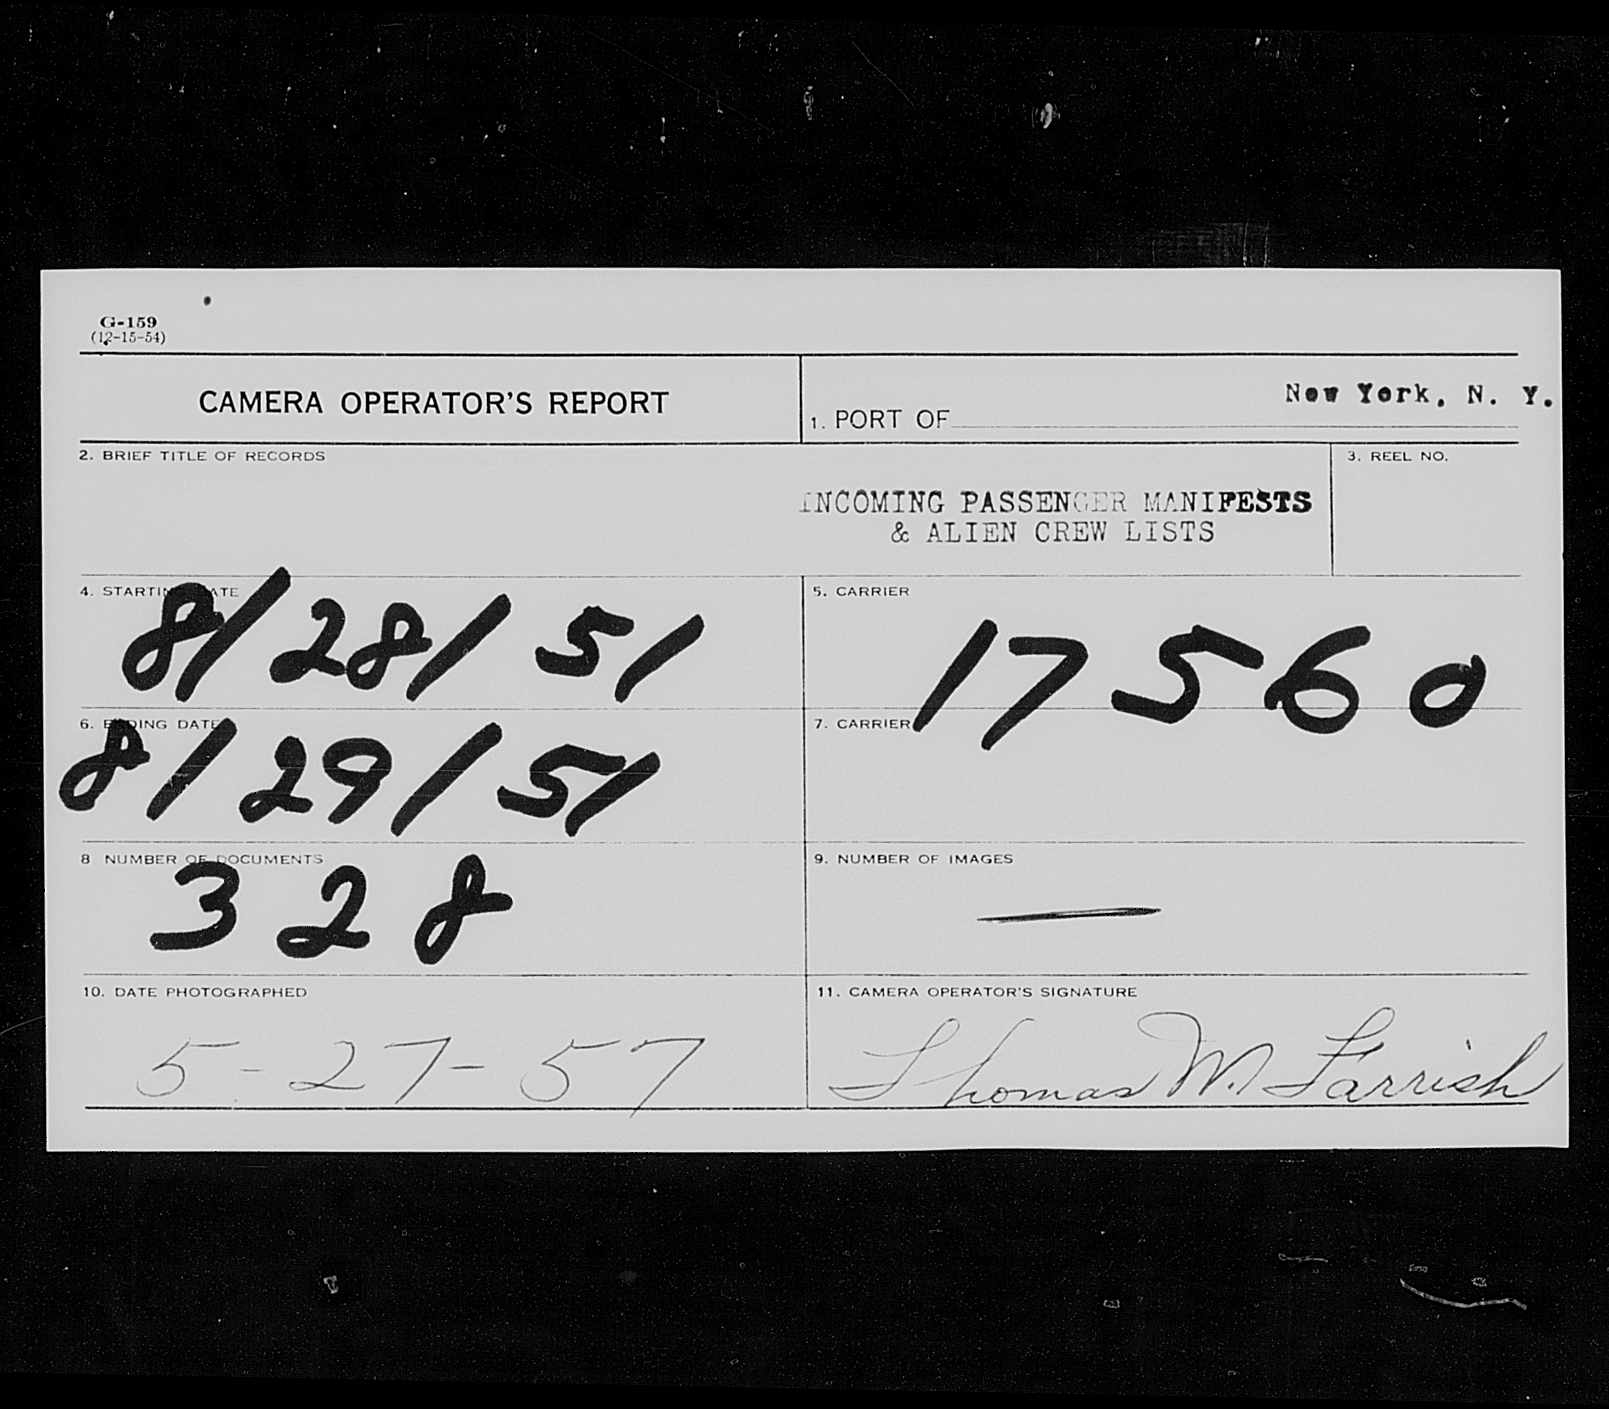 G-159
(12-15-54)
CAMERA OPERATOR'S REPORT
1. PORT OF New York, N. Y.
2. BRIEF TITLE OF RECORDS
INCOMING PASSENGER MANIFESTS
& ALIEN CREW LISTS
3. REEL NO.
4. STARTING DATE
8/28/51
5. CARRIER
17560
6. ENDING DATE
8/29/51
7. CARRIER
8 NUMBER OF DOCUMENTS
328
9. NUMBER OF IMAGES
—
10. DATE PHOTOGRAPHED
5-27-57
11. CAMERA OPERATOR'S SIGNATURE
Thomas W. Farrish